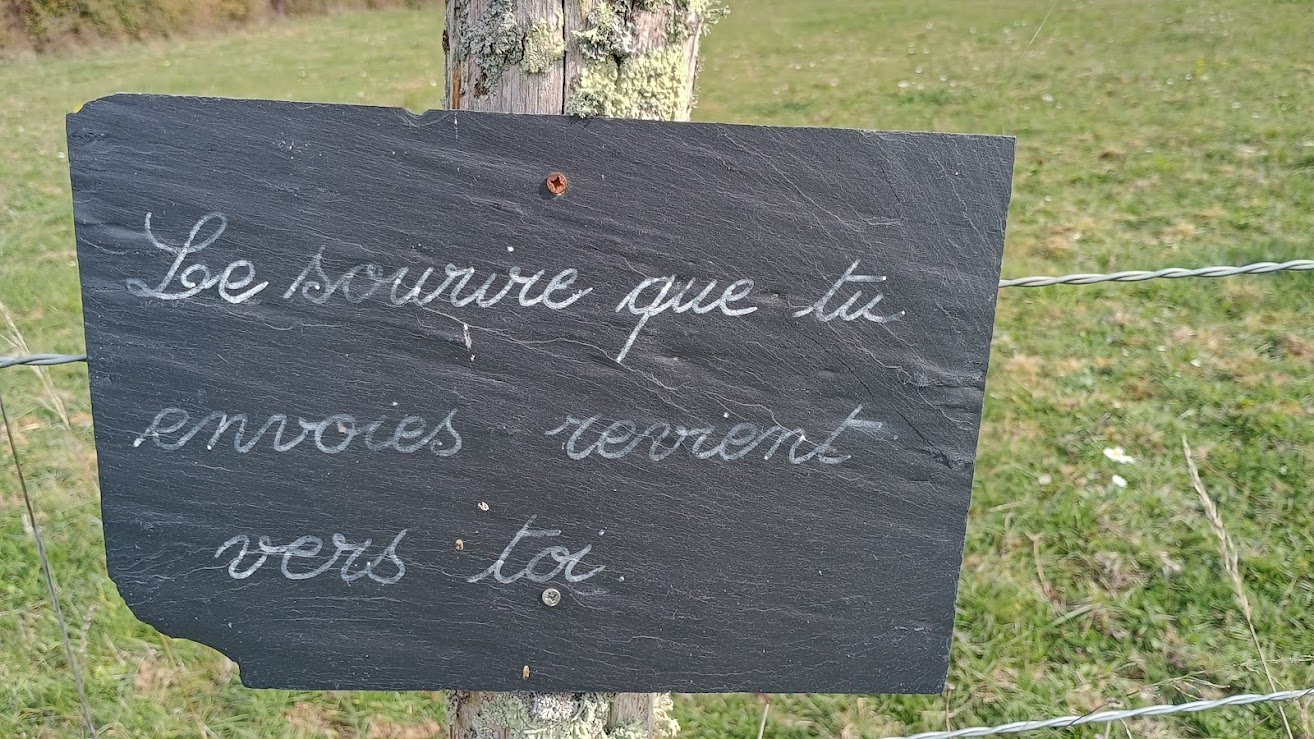 Le sourire que tu
envoies revient
vers toi.